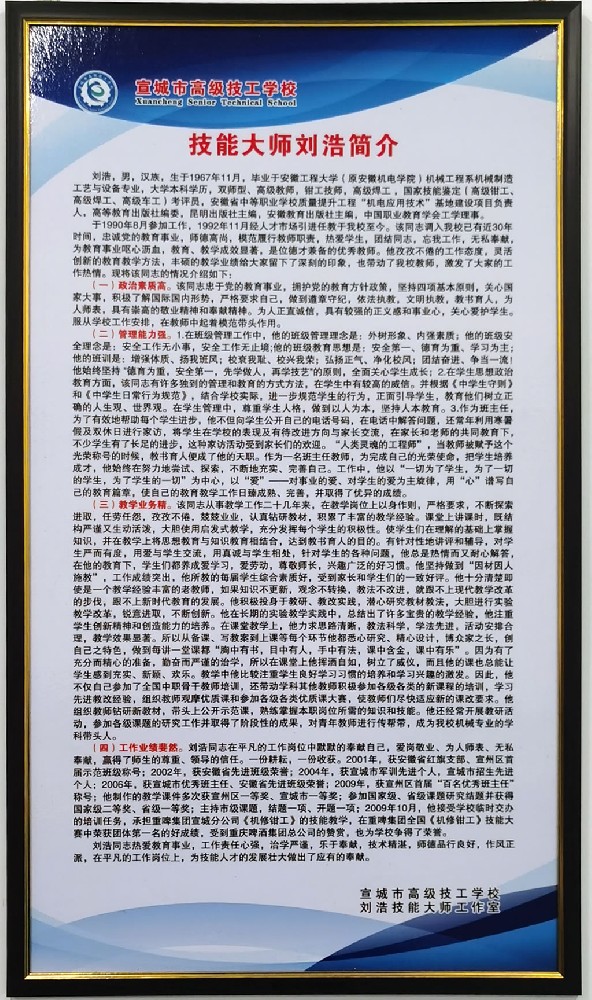 宣城市高级技工学校
Xuancheng Senior Technical School
技能大师刘浩简介
刘浩，男，汉族，生于1967年11月，毕业于安徽工程大学（原安徽机电学院）机械工程系机械制造
工艺与设备专业，大学本科学历，双师型、高级教师，钳工技师，高级焊工，国家技能鉴定（高级钳工、
高级焊工、高级车工）考评员，安徽省中等职业学校质量提升工程“机电应用技术”基地建设项目负责
人，高等教育出版社编委，昆明出版社主编，安徽教育出版社主编，中国职业教育学会工学理事。
于1990年8月参加工作，1992年11月经人才市场引进任教于我校至今。该同志调入我校已有近30年
时间，忠诚党的教育事业，师德高尚，模范履行教师职责，热爱学生，团结同志，忘我工作，无私奉献，
为教育事业呕心沥血，教育、教学成效显著，是位德才兼备的优秀教师。他孜孜不倦的工作态度，灵活
创新的教育教学方法，丰硕的教学业绩给大家留下了深刻的印象，也带动了我校教师，激发了大家的工
作热情。现将该同志的情况介绍如下：
（一）政治素质高。该同志忠于党的教育事业，拥护党的教育方针政策，坚持四项基本原则，关心国
家大事，积极了解国际国内形势，严格要求自己，做到遵章守纪，依法执教，文明执教，教书育人，为
人师表，具有崇高的敬业精神和奉献精神。为人正直诚信，具有较强的正义感和事业心，关心爱护学生。
服从学校工作安排，在教师中起着模范带头作用。
（二）管理能力强。1.在班级管理工作中，他的班级管理理念是：外树形象、内强素质；他的班级安
全理念是：安全工作无小事，安全工作无止境;他的班级教育思想是：安全第一、德育为重、学习为主；
他的班训是：增强体质、扬我班风；校衰我耻、校兴我荣；弘扬正气、净化校风；团结奋进、争当一流！
他始终坚持“德育为重，安全第一，先学做人，再学技艺”的原则，全面关心学生成长；2.在学生思想政治
教育方面，该同志有许多独到的管理和教育的方式方法，在学生中有较高的威信。并根据《中学生守则》
和《中学生日常行为规范》，结合学校实际，进一步规范学生的行为，正面引导学生，教育他们树立正
确的人生观、世界观。在学生管理中，尊重学生人格，做到以人为本，坚持人本教育。3.作为班主任，
为了有效地帮助每个学生进步，他不但向学生公开自己的电话号码，在电话中解答问题，还常年利用寒暑
假及双休日进行家访，将学生在学校的表现及有待改进方向与家长交流，在家长和老师的共同教育下，
不少学生有了长足的进步，这种家访活动受到家长们的欢迎。“人类灵魂的工程师”，当教师被赋予这个
光荣称号的时候，教书育人便成了他的天职。作为一名班主任教师，为完成自己的光荣使命，把学生培养
成才，他始终在努力地尝试、探索，不断地充实、完善自己。工作中，他以“一切为了学生，为了一切
的学生，为了学生的一切”为中心，以“爱”——对事业的爱、对学生的爱为主旋律，用“心”谱写自
己的教育篇章，使自己的教育教学工作日臻成熟、完善，并取得了优异的成绩。
（三）教学业务精。该同志从事教学工作二十几年来，在教学岗位上以身作则，严格要求，不断探索
进取，任劳任怨，孜孜不倦，兢兢业业，认真钻研教材，积累了丰富的教学经验。课堂上讲课时，既结
构严谨又生动活泼，大胆使用启发式教学，充分发挥每个学生的积极性。使学生们在理解的基础上掌握
知识，并在教学上将思想教育与知识教育相结合，达到教书育人的目的。有针对性地讲评和辅导，对学
生严而有度，用爱与学生交流，用真诚与学生相处，针对学生的各种问题，他总是热情而又耐心解答，
在他的教育下，学生们都养成爱学习，爱劳动，尊敬师长，兴趣广泛的好习惯。他坚持做到“因材因人
施教”，工作成绩突出，他所教的每届学生综合素质好，受到家长和学生们的一致好评。他十分清楚即
使是一个教学经验丰富的老教师，如果知识不更新，观念不转换，教法不改进，就跟不上现代教学改革
的步伐，跟不上新时代教育的发展。他积极投身于教研、教改实践，潜心研究教材教法，大胆进行实验
教学改革，锐意进取，不断创新。他在长期的实验教学实践中，总结出了许多宝贵的教学经验，他注重
学生创新精神和创造能力的培养。在课堂教学上，他力求思路清晰，教法科学，学法先进，活动安排合
理，教学效果显著。所以从备课、写教案到上课等每个环节他都悉心研究、精心设计，博众家之长，创
自己之特色，做到每讲一堂课都“胸中有书，目中有人，手中有法，课中含金，课中有乐”。因为有了
充分而精心的准备，勤奋而严谨的治学，所以在课堂上他挥洒自如，树立了威仪，而且他的课也总能让
学生感到充实、新颖、欢乐。教学中他比较注重学生良好学习习惯的培养和学习兴趣的激发。因此，他
不仅自己参加了全国中职骨干教师培训，还带动学科其他教师积极参加各级各类的新课程的培训，学习
先进教改经验，组织教师观摩优质课和参加各级各类优质课大赛，使教师们尽快适应新的课改要求。他
组织教师钻研新教材，带头上公开示范课，熟练掌握本职岗位所需的知识和技能。他还经常开展教研活
动，参加各级课题的研究工作并取得了阶段性的成果，对青年教师进行传帮带，成为我校机械专业的学
科带头人。
（四）工作业绩斐然。刘浩同志在平凡的工作岗位中默默的奉献自己，爱岗敬业、为人师表、无私
奉献，赢得了师生的尊重、领导的信任。一份耕耘，一份收获。2001年，获安徽省红旗支部、宣州区首
届示范班级称号；2002年，获安徽省先进班级荣誉；2004年，获宣城市军训先进个人，宣城市招生先进
个人；2006年，获宣城市优秀班主任、安徽省先进班级荣誉；2009年，获宣州区首届“百名优秀班主任”
称号；他制作的教学课件多次获宣州区一等奖、宣城市一等奖；参加国家级、省级课题研究结题并获得
国家级二等奖、省级一等奖；主持市级课题，结题一项、开题一项；2009年10月，他接受学校临时交办
的培训任务，承担重啤集团宣城分公司《机修钳工》的技能教学，在重啤集团全国《机修钳工》技能大
赛中荣获团体第一名的好成绩，受到重庆啤酒集团总公司的赞赏，也为学校争得了荣誉。
刘浩同志热爱教育事业，工作责任心强，治学严谨，乐于奉献，技术精湛，师德品行良好，作风正
派，在平凡的工作岗位上，为技能人才的发展壮大做出了应有的奉献。
宣城市高级技工学校
刘浩技能大师工作室